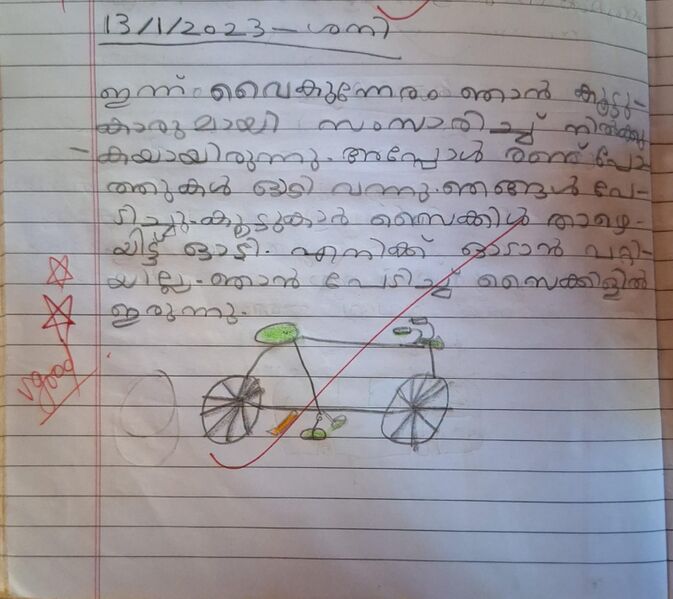 13/1/2023 - ശനി
ഇന്ന് വൈകുന്നേരം ഞാൻ കൂട്ടു-
കാരുമായി സംസാരിച്ച് നിൽക്കു
കയായിരുന്നു. അപ്പോൾ രണ്ട് പോ
ത്തുകൾ ഓടി വന്നു. ഞങ്ങൾ പേ-
ടിച്ചു. കൂട്ടുകാർ സൈക്കിൾ താഴെ-
യിട്ട് ഓടി. എനിക്ക് ഓടാൻ പറ്റി-
യില്ല. ഞാൻ പേടിച്ച് സൈക്കിളിൽ
ഇരുന്നു.
vgood